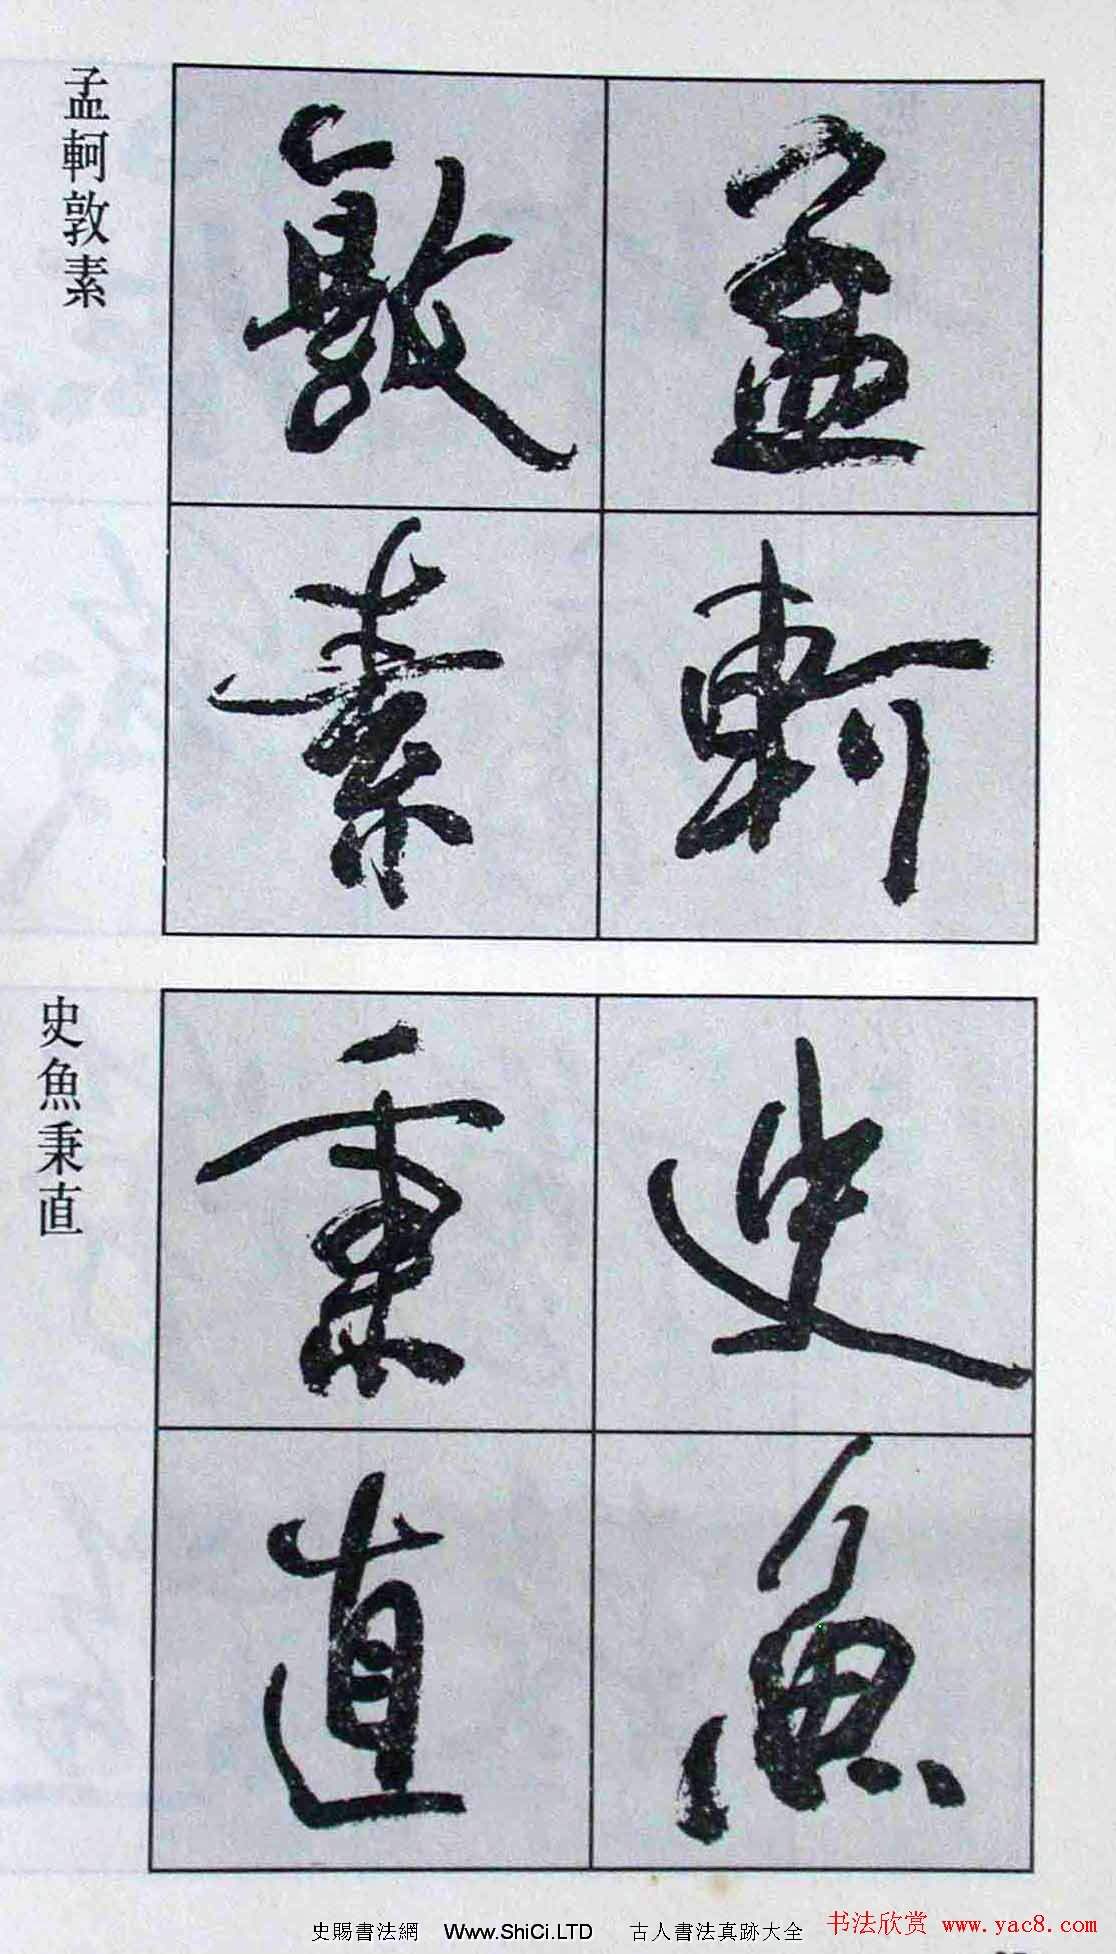 孟軻敦素
孟軻
敦素
史魚秉直
史魚
秉直
史賜書法網 Www.ShiCi.LTD 古人書法真跡大全
书法欣赏 www.yac8.com